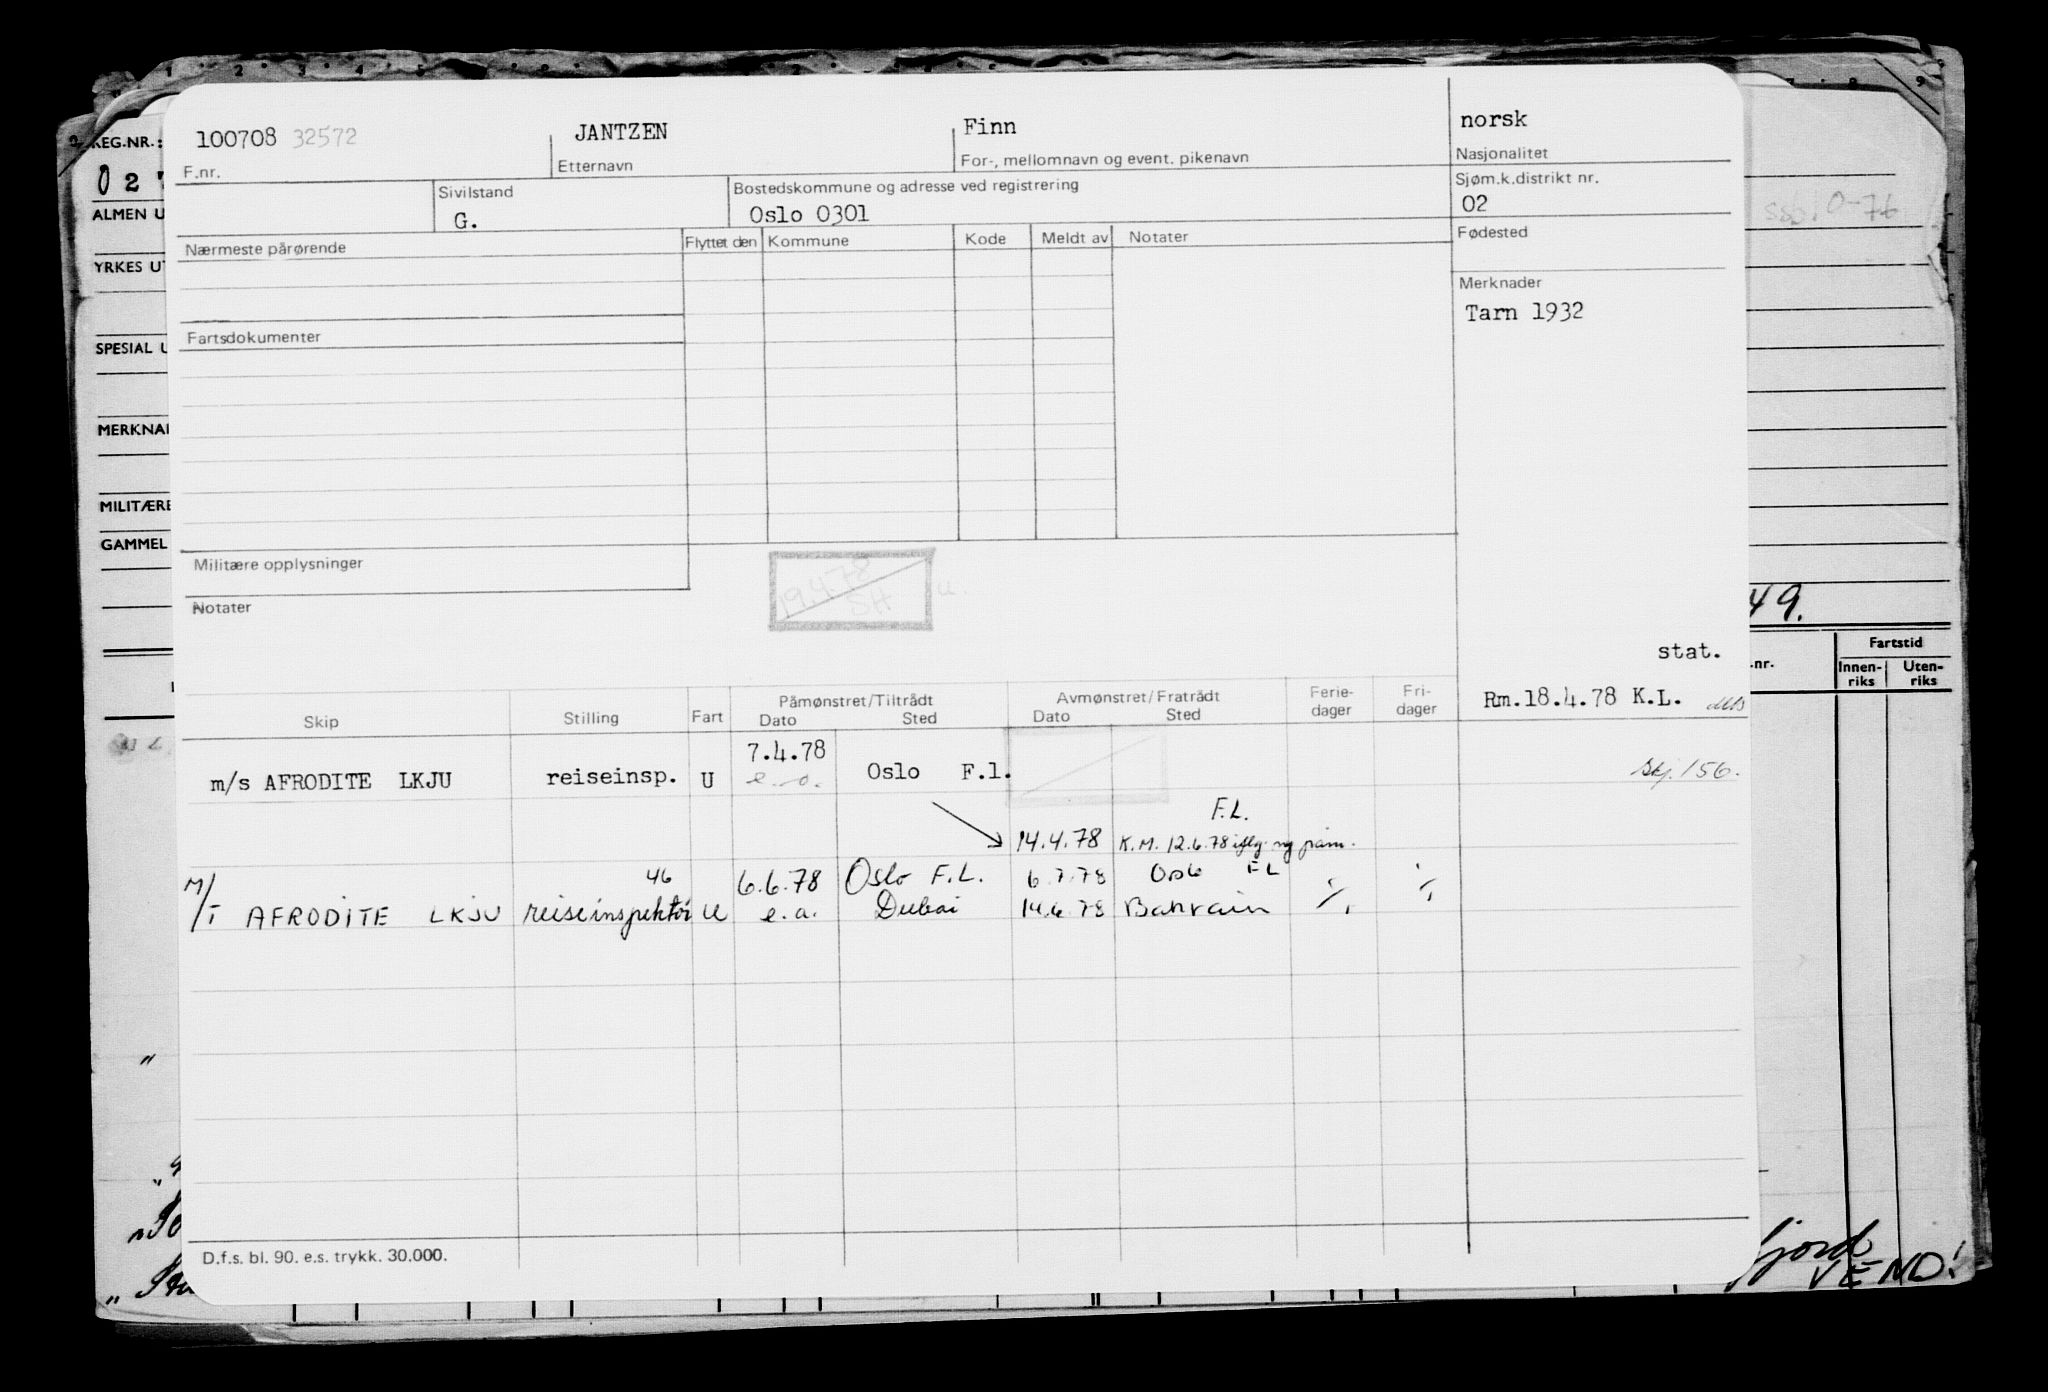 100708 32572
JANTZEN
Finn
norsk
F.nr.
Etternavn
For-, mellomnavn og event. pikenavn
Nasjonalitet
Sivilstand
G.
Bostedskommune og adresse ved registrering
Oslo 0301
Sjøm.k.distrikt nr.
02
Nærmeste pårørende
Flyttet den
Kommune
Kode
Meldt av
Notater
Fødested
Merknader
Tarn 1932
Fartsdokumenter
Militære opplysninger
Notater
19.4.78
SH
u.
stat.
Rm.18.4.78 K.L.
Skip
Stilling
Fart
Påmønstret/Tiltrådt
Dato Sted
Avmønstret/Fratrådt
Dato Sted
Ferie-
dager
Fri-
dager
7.4.78
m/s AFRODITE LKJU reiseinsp. U e.o. Oslo F.l.
skj.156.
F.L.
14.4.78 K.M. 12.6.78 iflg. ny påm.
46 6.6.78 Oslo F.L. 6.7.78 Oslo FL
M/T AFRODITE LKJU reiseinspektør U e.a. Dubai 14.6.78 Bahrain
D.f.s. bl. 90. e.s. trykk. 30.000.
REG.NR.:
0 2
ALMEN U
YRKES UT
SPESIAL U
MERKNA
MILITÆRE
GAMMEL
ssb. 0-76
49.
.nr.
Fartstid
Innen-
riks
Uten-
riks
fjord
VEND!